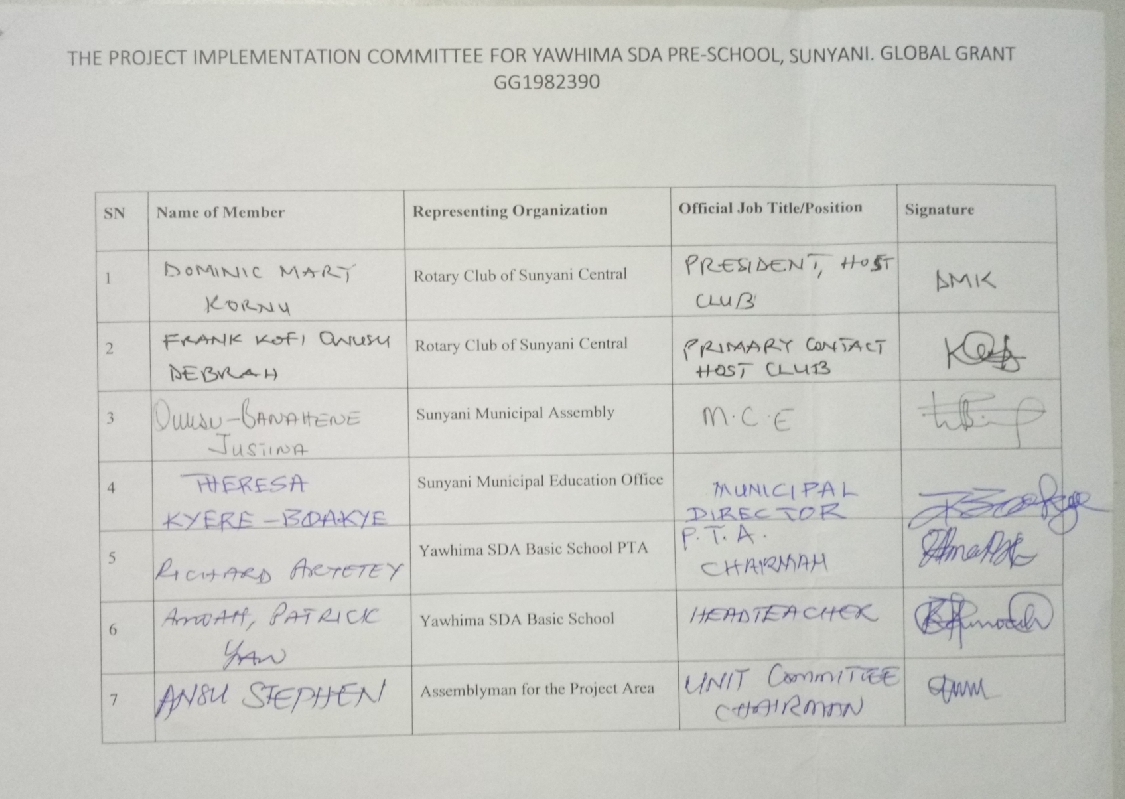 THE PROJECT IMPLEMENTATION COMMITTEE FOR YAWHIMA SDA PRE-SCHOOL, SUNYANI. GLOBAL GRANT
GG1982390
SN Name of Member Representing Organization Official Job Title/Position Signature
1 DOMINIC MARY Rotary Club of Sunyani Central PRESIDENT, HOST DMK
KORNU CLUB
2 FRANK KOFI OWUSU Rotary Club of Sunyani Central PRIMARY CONTACT
DEBRAH HOST CLUB
3 OWUSU-BANAHENE Sunyani Municipal Assembly M.C.E
JUSTINA
4 THERESA Sunyani Municipal Education Office MUNICIPAL
KYERE-BOAKYE DIRECTOR
5 Yawhima SDA Basic School PTA P.T.A.
RICHARD CHAIRMAN
6 PATRICK Yawhima SDA Basic School HEADTEACHER
YAW
7 ANSU STEPHEN Assemblyman for the Project Area UNIT COMMITTEE
CHAIRMAN